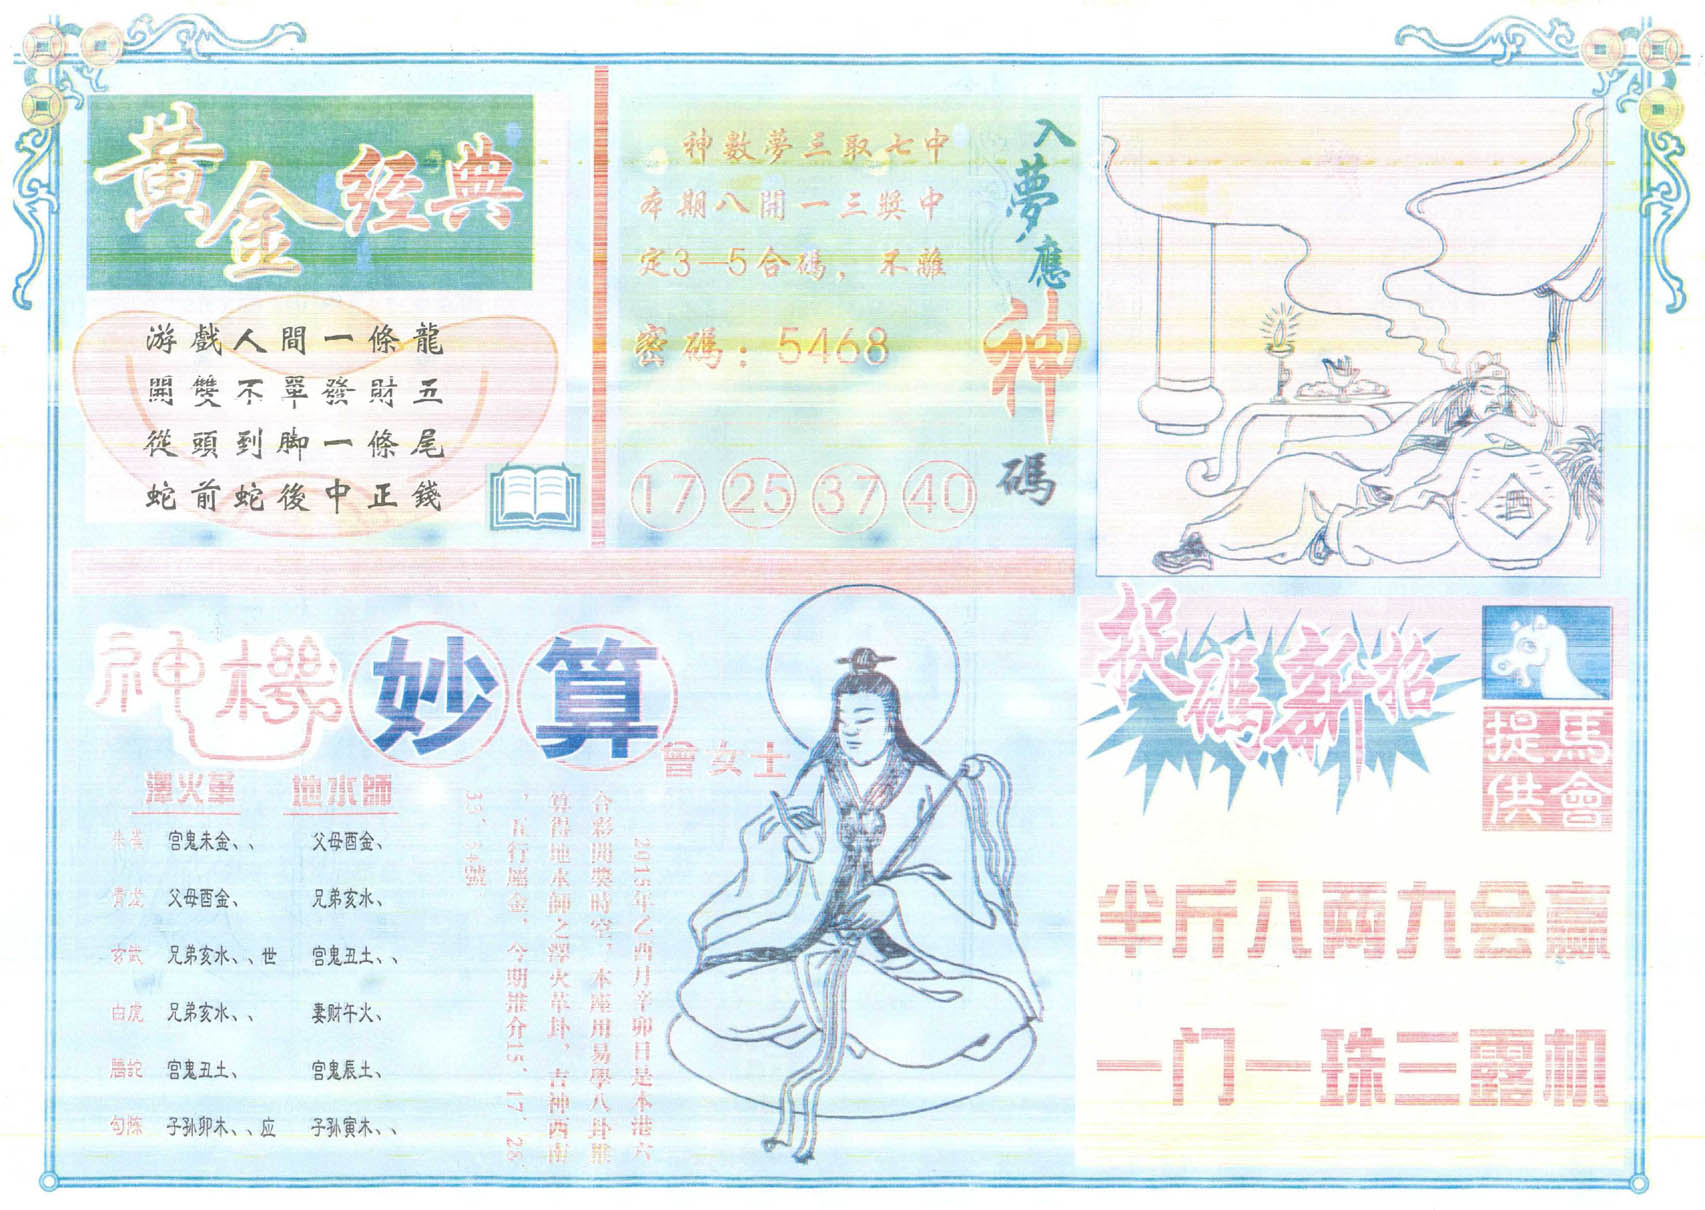 黃金经典
游戲人間一條龍
開雙不單發財五
從頭到脚一條尾
蛇前蛇後中正錢
神數夢三取七中
本期八開一三獎中
定3—5合碼，不離
密碼：5468
17 25 37 40
入夢應神碼
神機妙算
曾女士
澤火革 地水師
朱雀 宫鬼未金、、 父母酉金、
青龙 父母酉金、 兄弟亥水、
玄武 兄弟亥水、、世 宫鬼丑土、、
白虎 兄弟亥水、、 妻财午火、
螣蛇 宫鬼丑土、 宫鬼辰土、
勾陈 子孙卯木、、应 子孙寅木、、
2015年乙酉月辛卯日是本港六
合彩開獎時空，本座用易學八卦推
算得地水師之澤火革卦，吉神西南
，五行屬金，今期推介15、17、28、
33、34號。
捉碼新招
馬會
提供
半斤八兩九会赢
一门一珠三露机